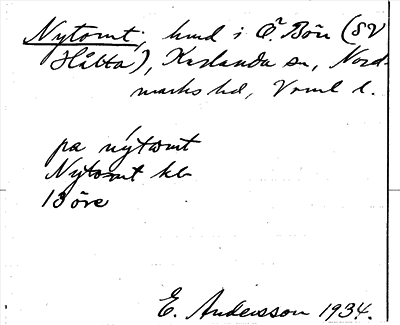 Nytomt, hmd i Ö. Bön (SV
Hålta), Karlanda sn, Nord-
marks hd, Vrml l.
pa nýtomt
Nytomt kb
Böre
E. Andersson 1934.